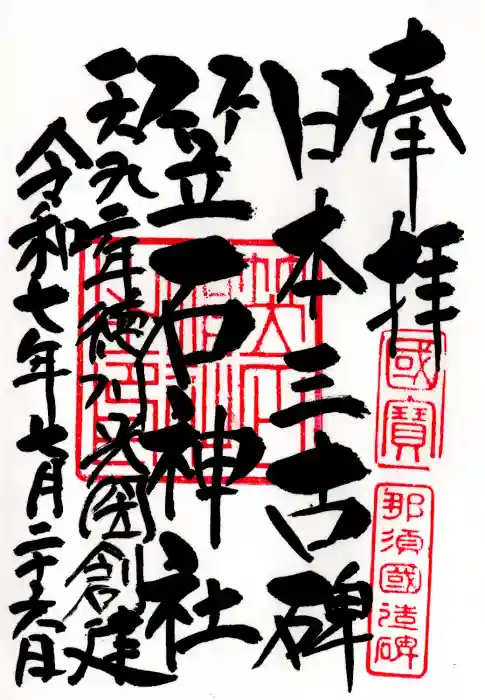 奉拝
國寶
那須國造碑
日本三古碑
笠石神社
一六九二年徳川光圀創建
令和七年七月二十六日